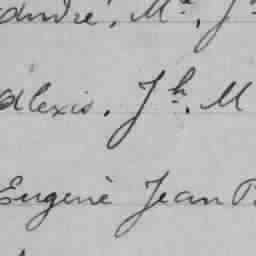 André, Mª, J
Alexis, Jʰ, M
Eugenè Jean B